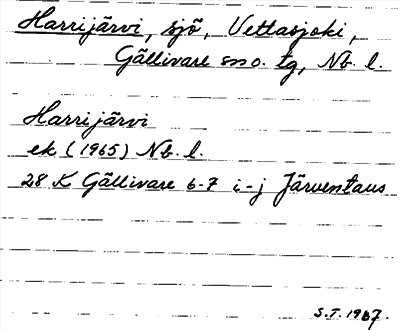 Harrijärvi, sjö, Vettasjoki,
Gällivare sno. tg, Nb. l.
Harrijärvi
ek (1965) Nb. l.
28 K Gällivare 6-7 i-j Järventaus
S.T. 1987.